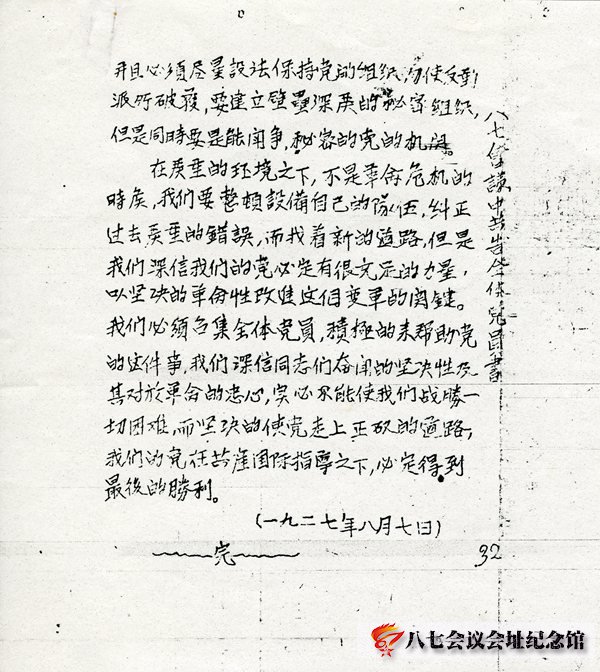 并且必須尽量設法保持党的組織,勿使反動
派所破獲,要建立堅壘深厳的秘密組織,
但是同時要是能闘争,秘密的党的机関
在厳重的环境之下,不是革命危机的
時矦,我們要整頓設備自己的隊伍,糾正
过去厳重的錯誤,而找着新的道路,但是
我們深信我們的党必定有很充足的力量,
以坚决的革命性改進这個变革的関鍵。
我們必須召集全体党員,積極的来帮助党
的这件事,我們深信同志們奋闘的坚决性及
其对於革命的忠心,实必尔能使我們战勝一
切困难,而坚决的使党走上正确的道路,
我們的党在共産国际指導之下,必定得到
最後的勝利。
(一九二七年八月七日)
完
八七会議中共告全体党員書
32
八七会议会址纪念馆